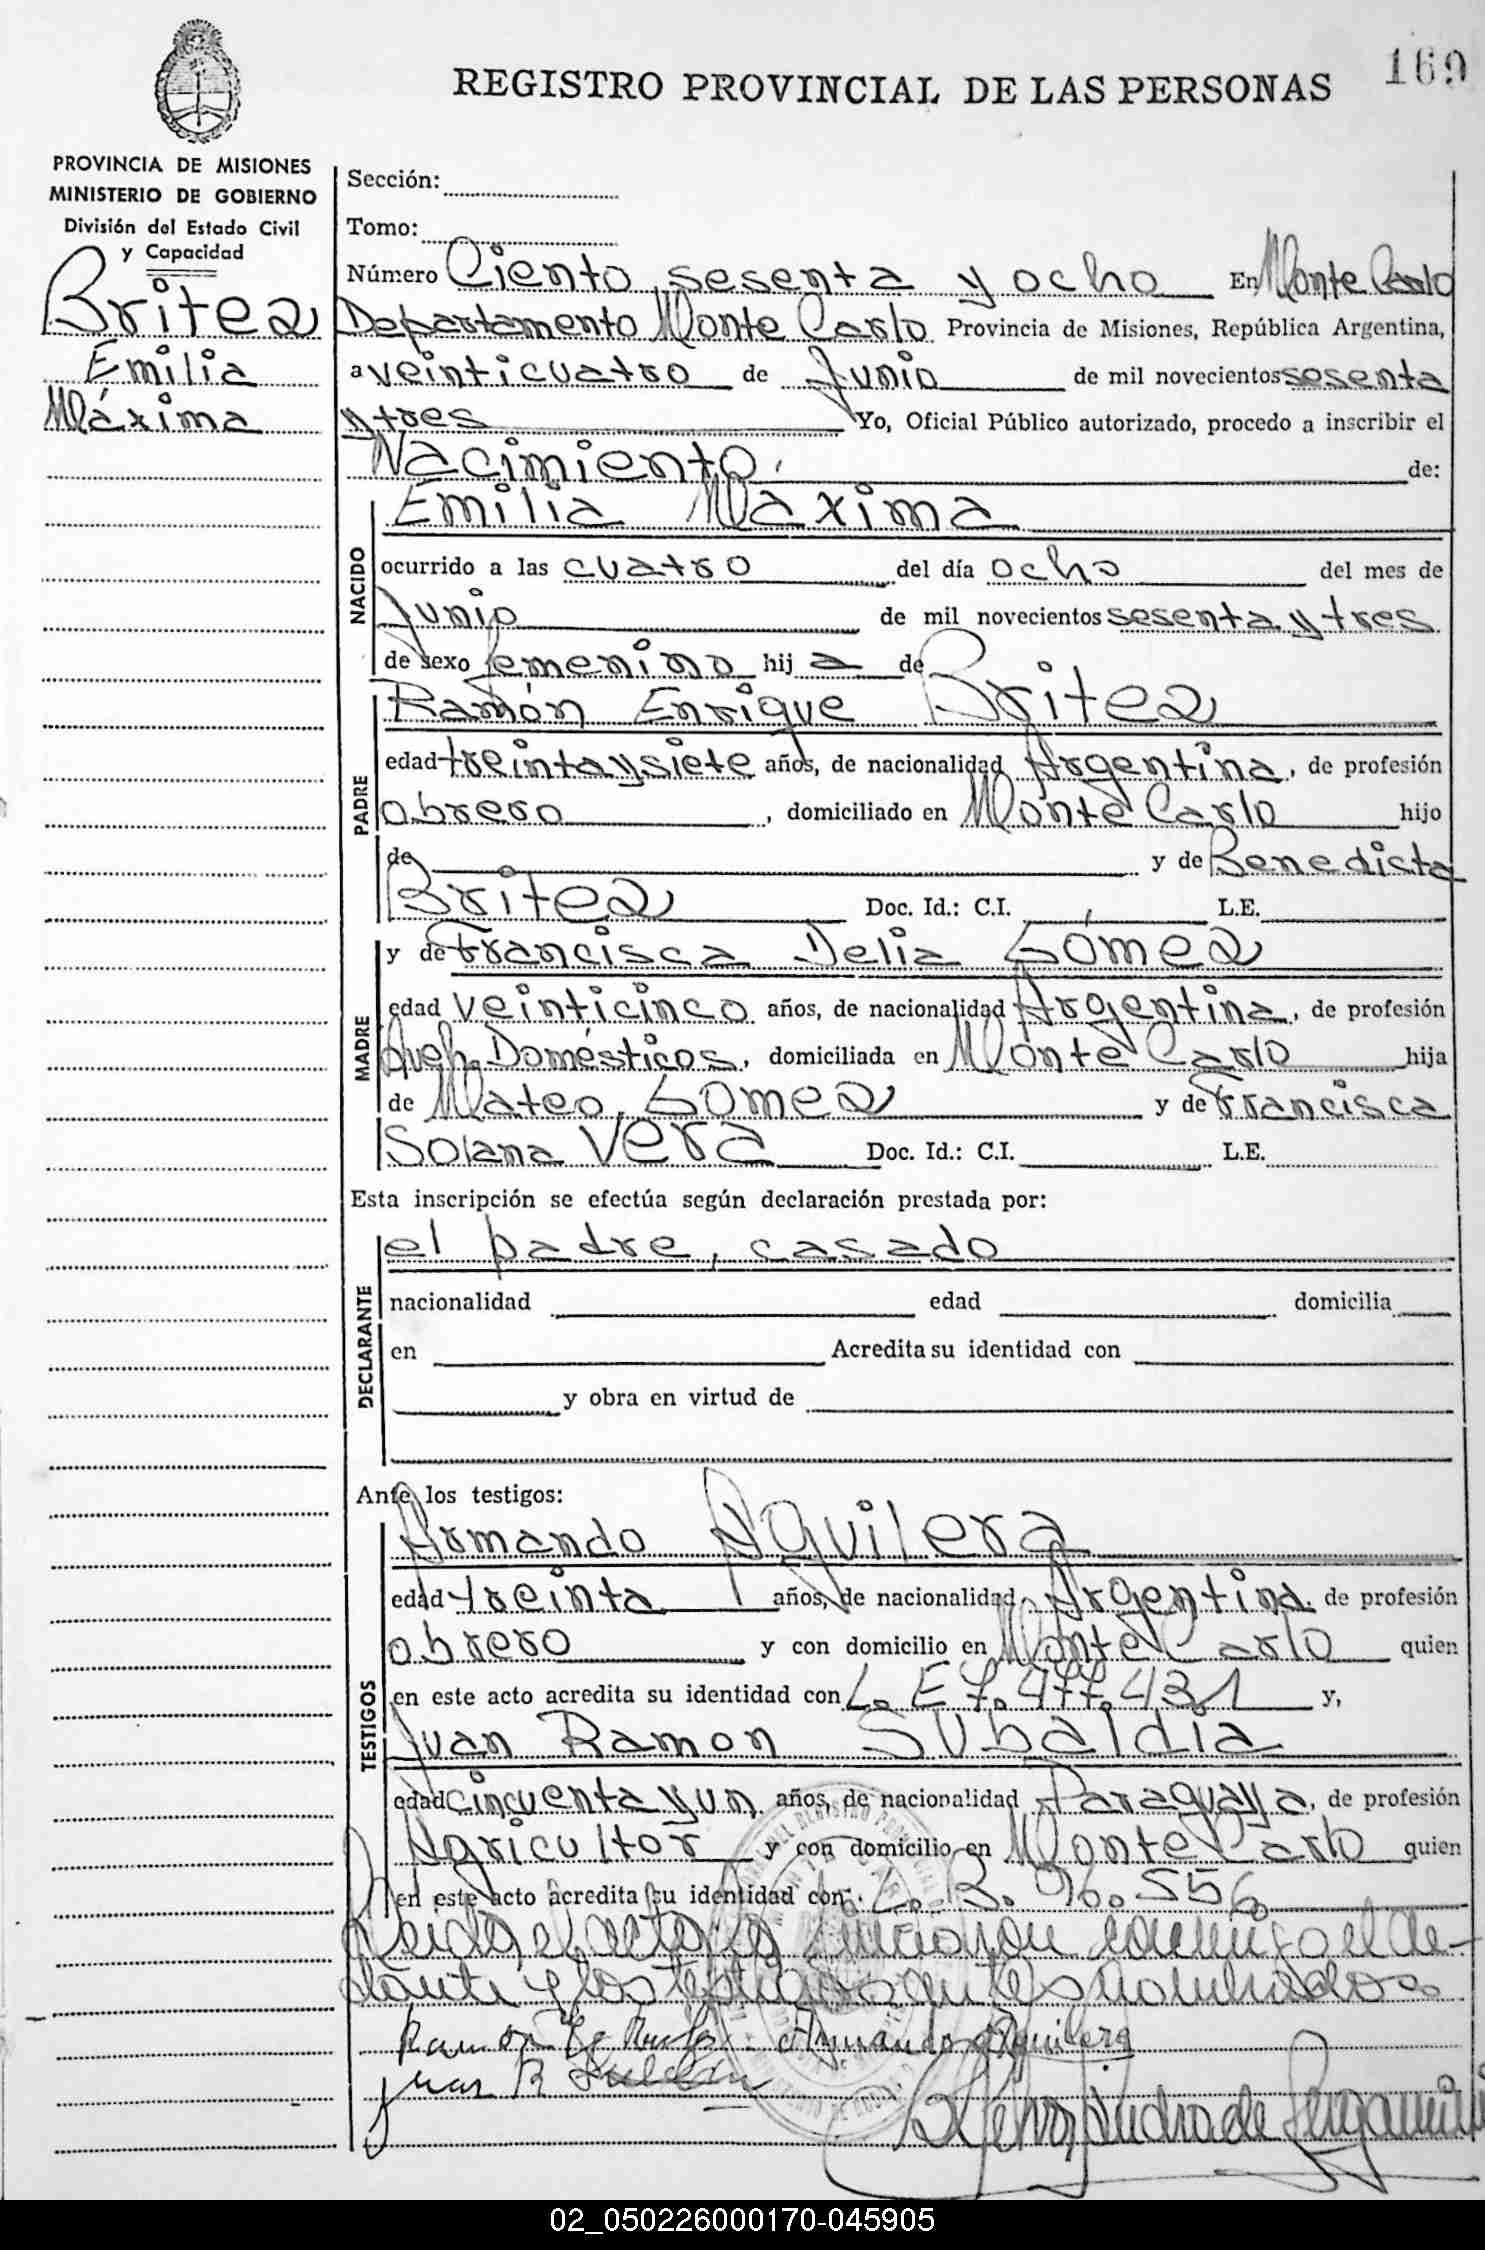 169
REGISTRO PROVINCIAL DE LAS PERSONAS
PROVINCIA DE MISIONES
MINISTERIO DE GOBIERNO
División del Estado Civil
y Capacidad
Britez
Emilia
Máxima
Sección:
Tomo:
Número Ciento sesenta y ocho En Monte Carlo
Departamento Monte Carlo Provincia de Misiones, República Argentina,
a veinticuatro de Junio de mil novecientos sesenta
y tres Yo, Oficial Público autorizado, procedo a inscribir el
Nacimiento de:
NACIDO
Emilia Máxima
ocurrido a las cuatro del día ocho del mes de
Junio de mil novecientos sesenta y tres
de sexo femenino hij a de
PADRE
Ramón Enrique Britez
edad treinta y siete años, de nacionalidad Argentina, de profesión
obrero, domiciliado en Monte Carlo hijo
de y de Benedicta
Britez Doc. Id.: C.I. L.E.
MADRE
y de Francisca Delia Gómez
edad veinticinco años, de nacionalidad Argentina, de profesión
Queh. Domésticos, domiciliada en Monte Carlo hija
de Mateo Gomez y de Francisca
Solana Vera Doc. Id.: C.I. L.E.
Esta inscripción se efectúa según declaración prestada por:
DECLARANTE
el padre, casado
nacionalidad edad domicilia
en Acredita su identidad con
y obra en virtud de
Ante los testigos:
TESTIGOS
Armando Aguilera
edad treinta años, de nacionalidad Argentina, de profesión
obrero y con domicilio en Monte Carlo quien
en este acto acredita su identidad con L. E 7.477.431 y,
Juan Ramon Subaldia
edad cincuenta y un años, de nacionalidad Paraguaya, de profesión
Agricultor y con domicilio en Monte Carlo quien
en este acto acredita su identidad con: L. B. 96.556
Leida el acta la conmigo el de-
clarante y los testigos antes nombrados
Ramon Armando Aguilera
Juan R
02_050226000170-045905